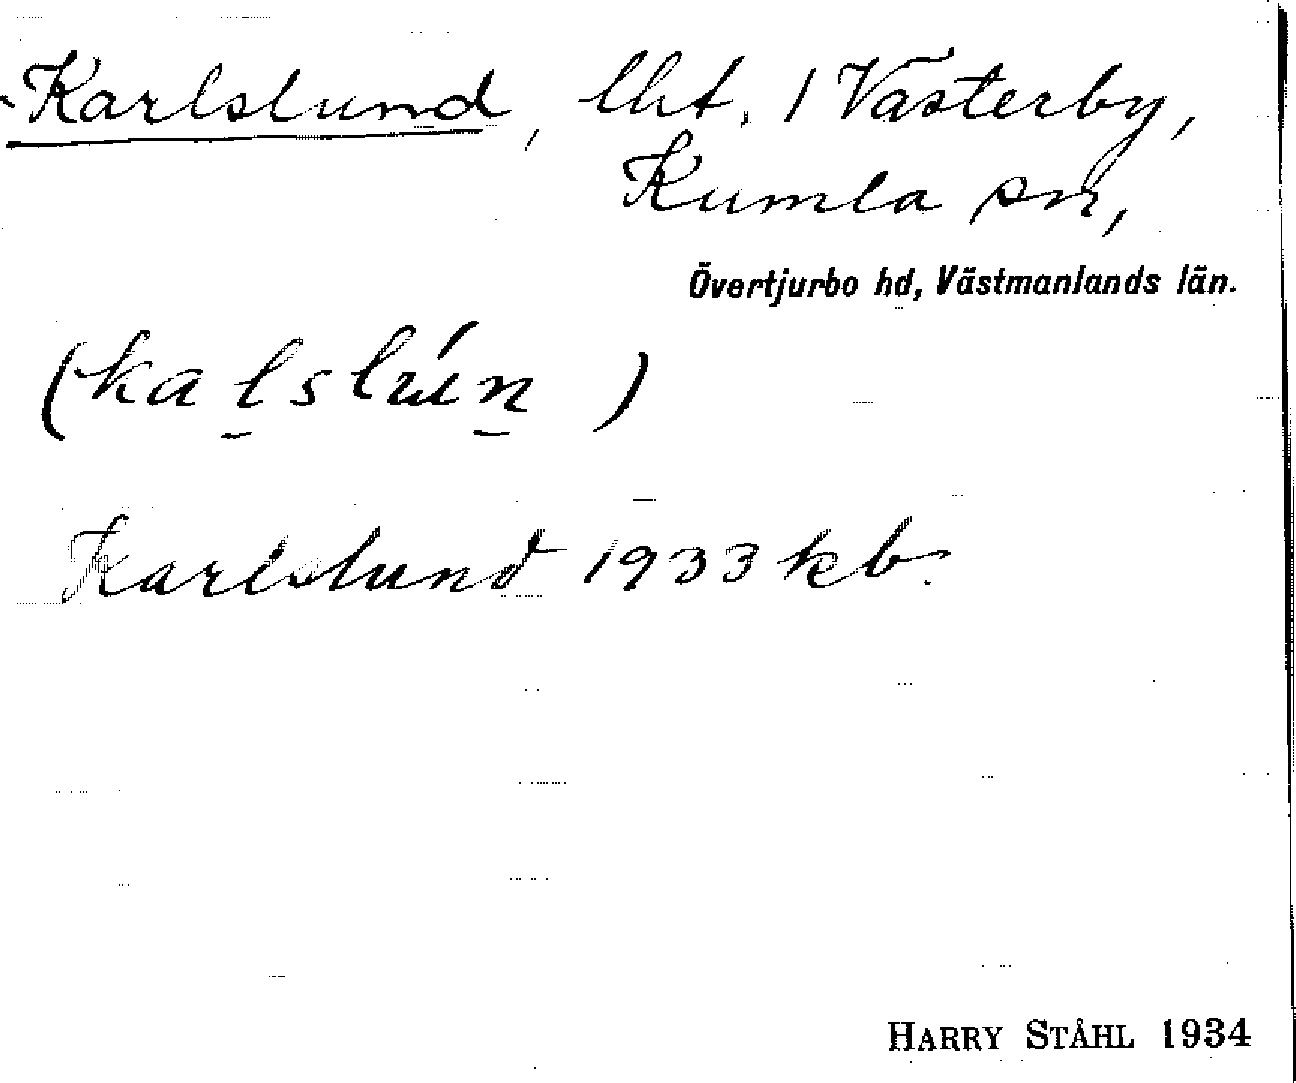 Karlslund, lht. / Västerby,
Kumla sn,
Övertjurbo hd, Västmanlands län.
(kalslún)
Karlslund 1933 kb.
HARRY STÅHL 1934